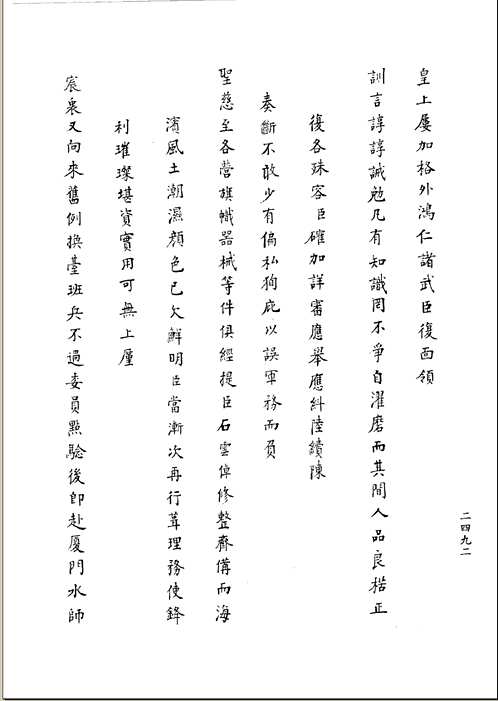 皇上屢加格外鴻仁諸武臣復面領
訓言諄諄誡勉凡有知識罔不爭自濯磨而其間人品良楛正
復各殊容臣確加詳審應舉應糾陸續陳
奏斷不敢少有偏私狥庇以誤軍務而負
聖慈至各營旗幟器械等件俱經提臣石雲倬修整齊備而海
濱風土潮濕顏色已欠鮮明臣當漸次再行葺理務使鋒
利璀璨堪資實用可無上廑
宸衷又向來舊例換臺班兵不過委員點驗後即赴廈門水師
二四九二